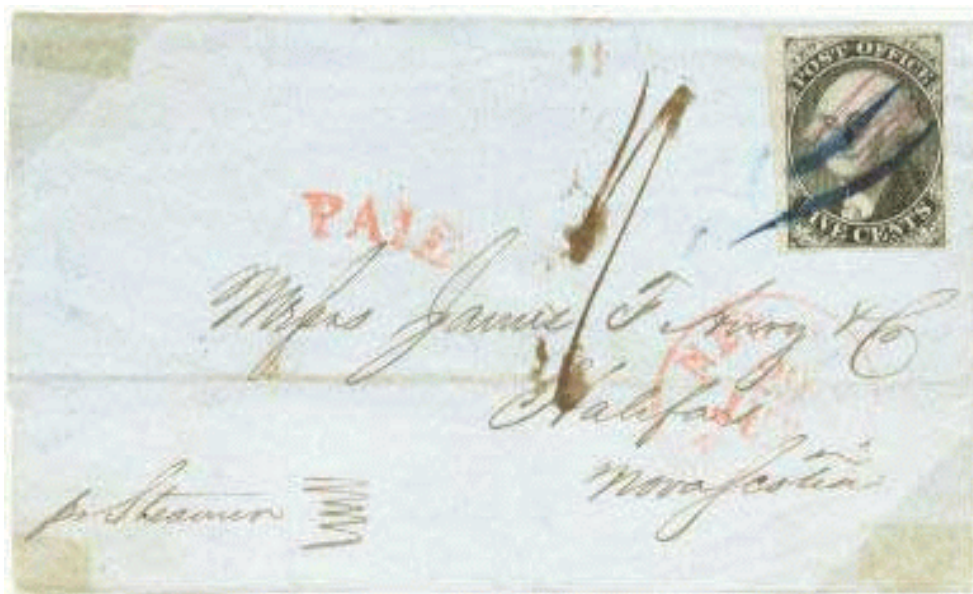 POST OFFICE
IVE CENTS
PAIE
Messrs James F Avery & C
Halifax
Nova Scotia
pr Steamer